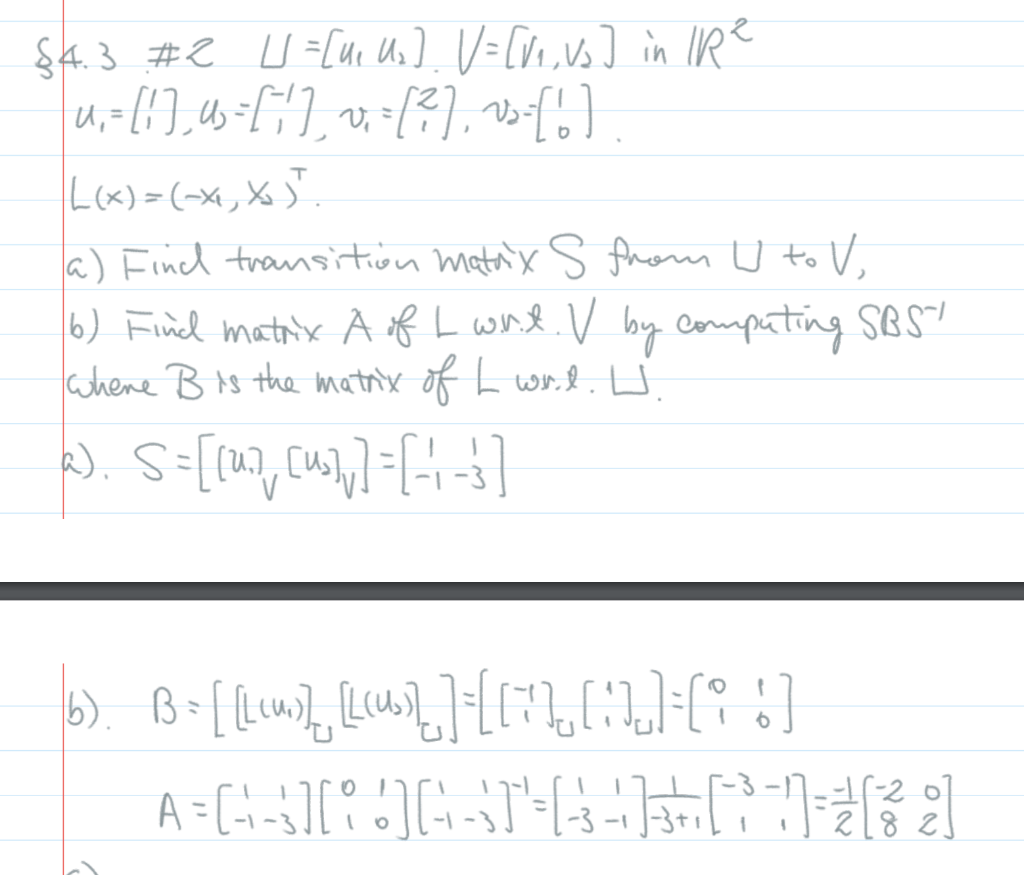 §4.3 #2 U=[u₁ u₂]. V=[v₁,v₂] in ℝ²
u₁=[1; 1], u₂=[-1; 1], v₁=[2; 1], v₂=[1; 0].
L(x)=(-x₁, x₂)ᵀ.
a) Find transition matrix S from U to V,
b) Find matrix A of L w.r.t. V by computing SBS⁻¹
where B is the matrix of L w.r.t. U.
a). S=[[u₁]_V [u₂]_V]=[1 1; -1 -3]
b). B=[[L(u₁)]_U [L(u₂)]_U]=[[-1; 1]_U [1; 1]_U]=[0 1; 1 0]
A=[1 1; -1 -3][0 1; 1 0][1 1; -1 -3]⁻¹=[1 1; -3 -1] 1/(-3+1) [-3 -1; 1 1]=-1/2[-2 0; 8 2]